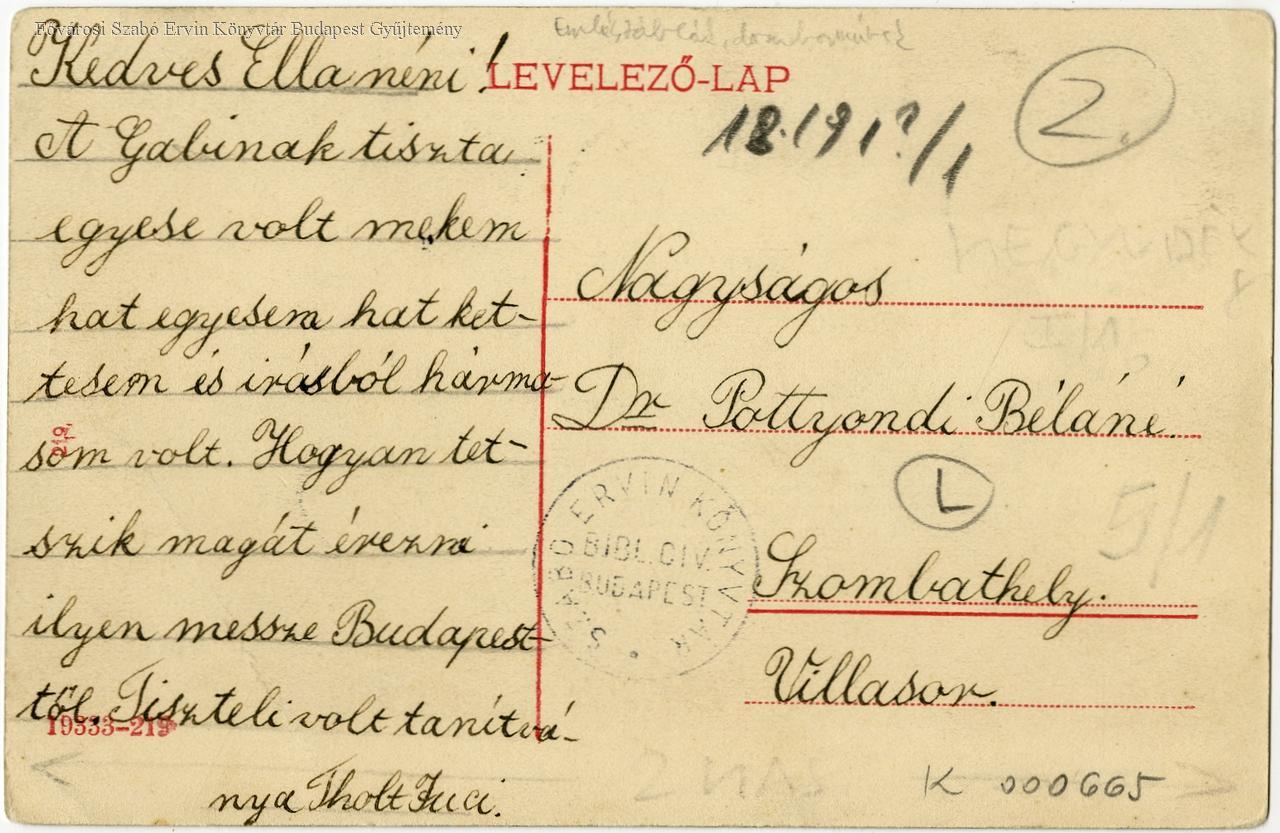 Fővárosi Szabó Ervin Könyvtár Budapest Gyűjtemény
Kedves Ella néni!
LEVELEZŐ-LAP
2.
A Gabinak tiszta
egyese volt mekem
hat egyesem hat ket-
tesem és irásból hárma-
som volt. Hogyan tet-
szik magát érezni
ilyen messze Budapest-
től. Tiszteli volt tanítvá-
nya Tholt Juci.
19333-219
219
Nagyságos
Dr Pottyondi Béláné.
L
5/1
Szombathely.
Villasor.
SZABÓ ERVIN KÖNYVTÁR
BIBL. CIV.
BUDAPEST
K 000665